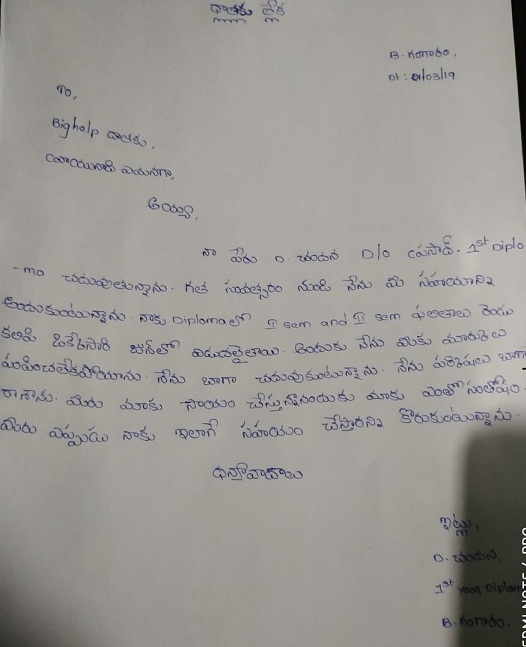 దాతకు లేఖ
B. గంగారం,
Dt : 01/03/19
To,
Bighelp దాతకు,
వ్రాయునది ఏమనగా,
అయ్యా,
నా పేరు D. చందన D/o ప్రసాద్. 1st Diplo
-ma చదువుతున్నాను. గత సంవత్సరం నుండి నేను మీ సహాయాన్ని
అందుకుంటున్నాను. నాకు Diploma లో I sem and II sem ఫలితాలు రెండు
కలిపి ఒకేసారి జూన్‌లో విడుదలైతాయి. అందుకు నేను మీకు మార్కులు
పంపించలేకపోయాను. నేను బాగా చదువుకుంటున్నాను. నేను పరీక్షలు బాగా
రాశాను. మీరు మాకు సాయం చేస్తున్నందుకు మాకు ఎంతో సంతోషం.
మీరు ఎప్పుడు నాకు ఇలాగే సహాయం చేస్తారని కోరుకుంటున్నాను.
ధన్యవాదాలు
ఇట్లు,
D. చందన,
1st year Diplom
B. గంగారం.